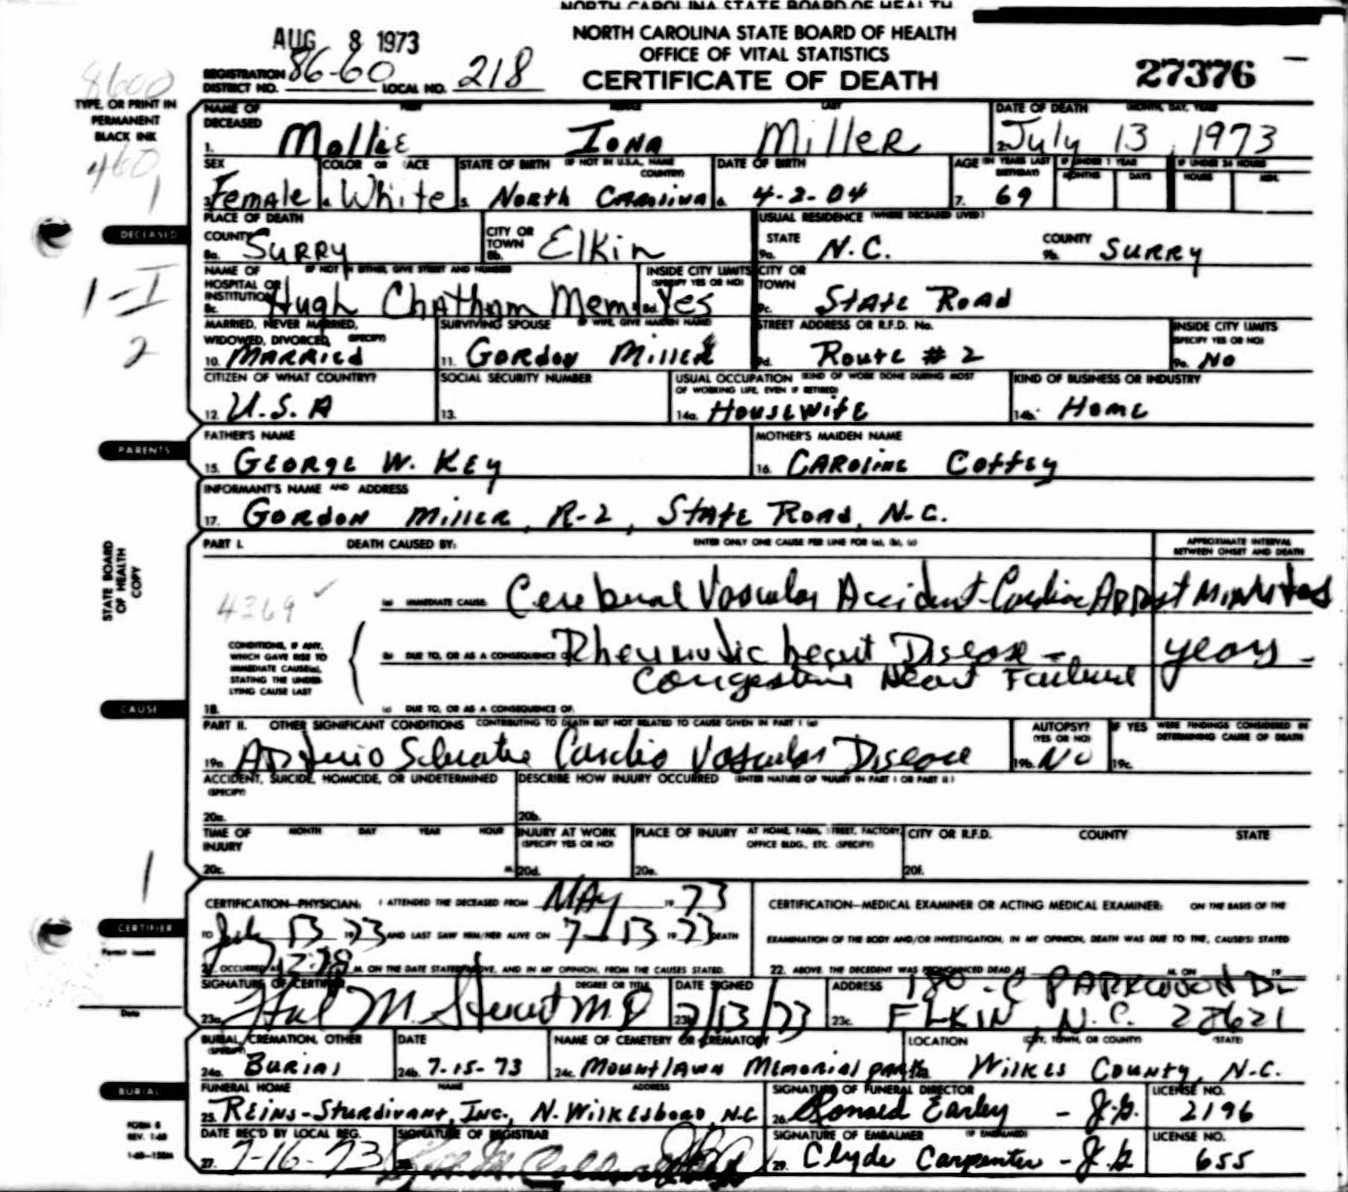 NORTH CAROLINA STATE BOARD OF HEALTH
AUG 8 1973
NORTH CAROLINA STATE BOARD OF HEALTH
OFFICE OF VITAL STATISTICS
CERTIFICATE OF DEATH
27376
REGISTRATION DISTRICT NO. 86-60 LOCAL NO. 218
8600
TYPE, OR PRINT IN
PERMANENT
BLACK INK
460
1
NAME OF DECEASED FIRST MIDDLE LAST DATE OF DEATH MONTH, DAY, YEAR
1. Mollie Iona Miller 2. July 13, 1973
SEX COLOR OR RACE STATE OF BIRTH (IF NOT IN U.S.A., NAME COUNTRY) DATE OF BIRTH AGE (IN YEARS LAST BIRTHDAY) IF UNDER 1 YEAR MONTHS DAYS IF UNDER 24 HOURS HOURS MIN.
3. Female 4. White 5. North Carolina 6. 4-2-04 7. 69
DECEASED
PLACE OF DEATH USUAL RESIDENCE (WHERE DECEASED LIVED)
COUNTY 8a. Surry CITY OR TOWN 8b. Elkin STATE 9a. N.C. COUNTY 9b. Surry
1-I
2
NAME OF HOSPITAL OR INSTITUTION (IF NOT IN EITHER, GIVE STREET AND NUMBER) INSIDE CITY LIMITS (SPECIFY YES OR NO) CITY OR TOWN
8c. Hugh Chatham Mem. 8d. Yes 9c. State Road
MARRIED, NEVER MARRIED, WIDOWED, DIVORCED, (SPECIFY) SURVIVING SPOUSE (IF WIFE, GIVE MAIDEN NAME) STREET ADDRESS OR R.F.D. No. INSIDE CITY LIMITS (SPECIFY YES OR NO)
10. Married 11. Gordon Miller 9d. Route # 2 9e. No
CITIZEN OF WHAT COUNTRY? SOCIAL SECURITY NUMBER USUAL OCCUPATION (KIND OF WORK DONE DURING MOST OF WORKING LIFE, EVEN IF RETIRED) KIND OF BUSINESS OR INDUSTRY
12. U.S.A 13. 14a. Housewife 14b. Home
PARENTS
FATHER'S NAME MOTHER'S MAIDEN NAME
15. George W. Key 16. Caroline Coffey
INFORMANT'S NAME AND ADDRESS
17. Gordon Miller, R-2, State Road, N.C.
STATE BOARD
OF HEALTH
COPY
PART I. DEATH CAUSED BY: ENTER ONLY ONE CAUSE PER LINE FOR (a), (b), (c) APPROXIMATE INTERVAL BETWEEN ONSET AND DEATH
4369
(a) IMMEDIATE CAUSE Cerebral Vascular Accident-Cardiac Arrest Minutes
CONDITIONS, IF ANY,
WHICH GAVE RISE TO
IMMEDIATE CAUSE(a),
STATING THE UNDER-
LYING CAUSE LAST
(b) DUE TO, OR AS A CONSEQUENCE OF Rheumatic heart Disease - years -
Congestive Heart Failure
CAUSE
18. (c) DUE TO, OR AS A CONSEQUENCE OF:
PART II. OTHER SIGNIFICANT CONDITIONS CONTRIBUTING TO DEATH BUT NOT RELATED TO CAUSE GIVEN IN PART I (a) AUTOPSY? (YES OR NO) IF YES WERE FINDINGS CONSIDERED IN DETERMINING CAUSE OF DEATH
19a. Arterio Sclerotic Cardio Vascular Disease 19b. No 19c.
ACCIDENT, SUICIDE, HOMICIDE, OR UNDETERMINED (SPECIFY) DESCRIBE HOW INJURY OCCURRED (ENTER NATURE OF INJURY IN PART I OR PART II)
20a. 20b.
TIME OF INJURY MONTH DAY YEAR HOUR INJURY AT WORK (SPECIFY YES OR NO) PLACE OF INJURY AT HOME, FARM, STREET, FACTORY, OFFICE BLDG., ETC. (SPECIFY) CITY OR R.F.D. COUNTY STATE
20c. M. 20d. 20e. 20f.
1
CERTIFIER
CERTIFICATION-PHYSICIAN: I ATTENDED THE DECEASED FROM MAY 19 73
TO July 13 19 73 AND LAST SAW HIM/HER ALIVE ON 7-13 19 73 DEATH
21. OCCURRED AT M. ON THE DATE STATED ABOVE, AND IN MY OPINION, FROM THE CAUSES STATED.
CERTIFICATION-MEDICAL EXAMINER OR ACTING MEDICAL EXAMINER: ON THE BASIS OF THE
EXAMINATION OF THE BODY AND/OR INVESTIGATION, IN MY OPINION, DEATH WAS DUE TO THE, CAUSE(S) STATED
22. ABOVE. THE DECEDENT WAS PRONOUNCED DEAD AT M. ON 19
SIGNATURE OF CERTIFIER DEGREE OR TITLE DATE SIGNED ADDRESS
23a. Hal M. Stuart M.D 23b. 7/13/73 23c. 180-C PARKWOOD DR
ELKIN, N.C. 28621
Date
BURIAL, CREMATION, OTHER (SPECIFY) DATE NAME OF CEMETERY OR CREMATORY LOCATION (CITY, TOWN, OR COUNTY) (STATE)
24a. Burial 24b. 7-15-73 24c. Mountlawn Memorial Park Wilkes County, N.C.
BURIAL
FUNERAL HOME NAME ADDRESS SIGNATURE OF FUNERAL DIRECTOR LICENSE NO.
25. Reins-Sturdivant, Inc., N. Wilkesboro, N.C 26. Ronald Earley - J.G. 2196
FORM 8
REV. 1-68
DATE REC'D BY LOCAL REG. SIGNATURE OF REGISTRAR SIGNATURE OF EMBALMER (IF EMBALMED) LICENSE NO.
27. 7-16-73 28. 29. Clyde Carpenter - J.G 655